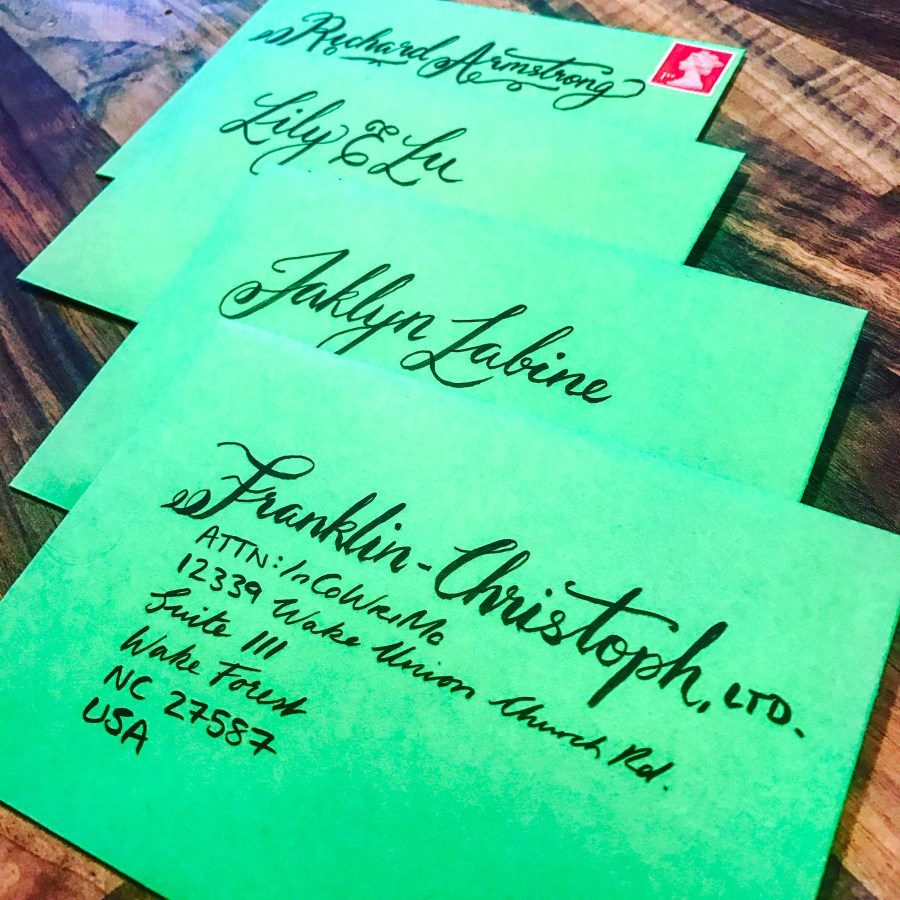 Richard Armstrong
1st
Lily E Lu
Jaklyn Labine
Franklin-Christoph, LTD.
ATTN: InCoWriMo
12339 Wake Union Church Rd.
Suite 111
Wake Forest
NC 27587
USA